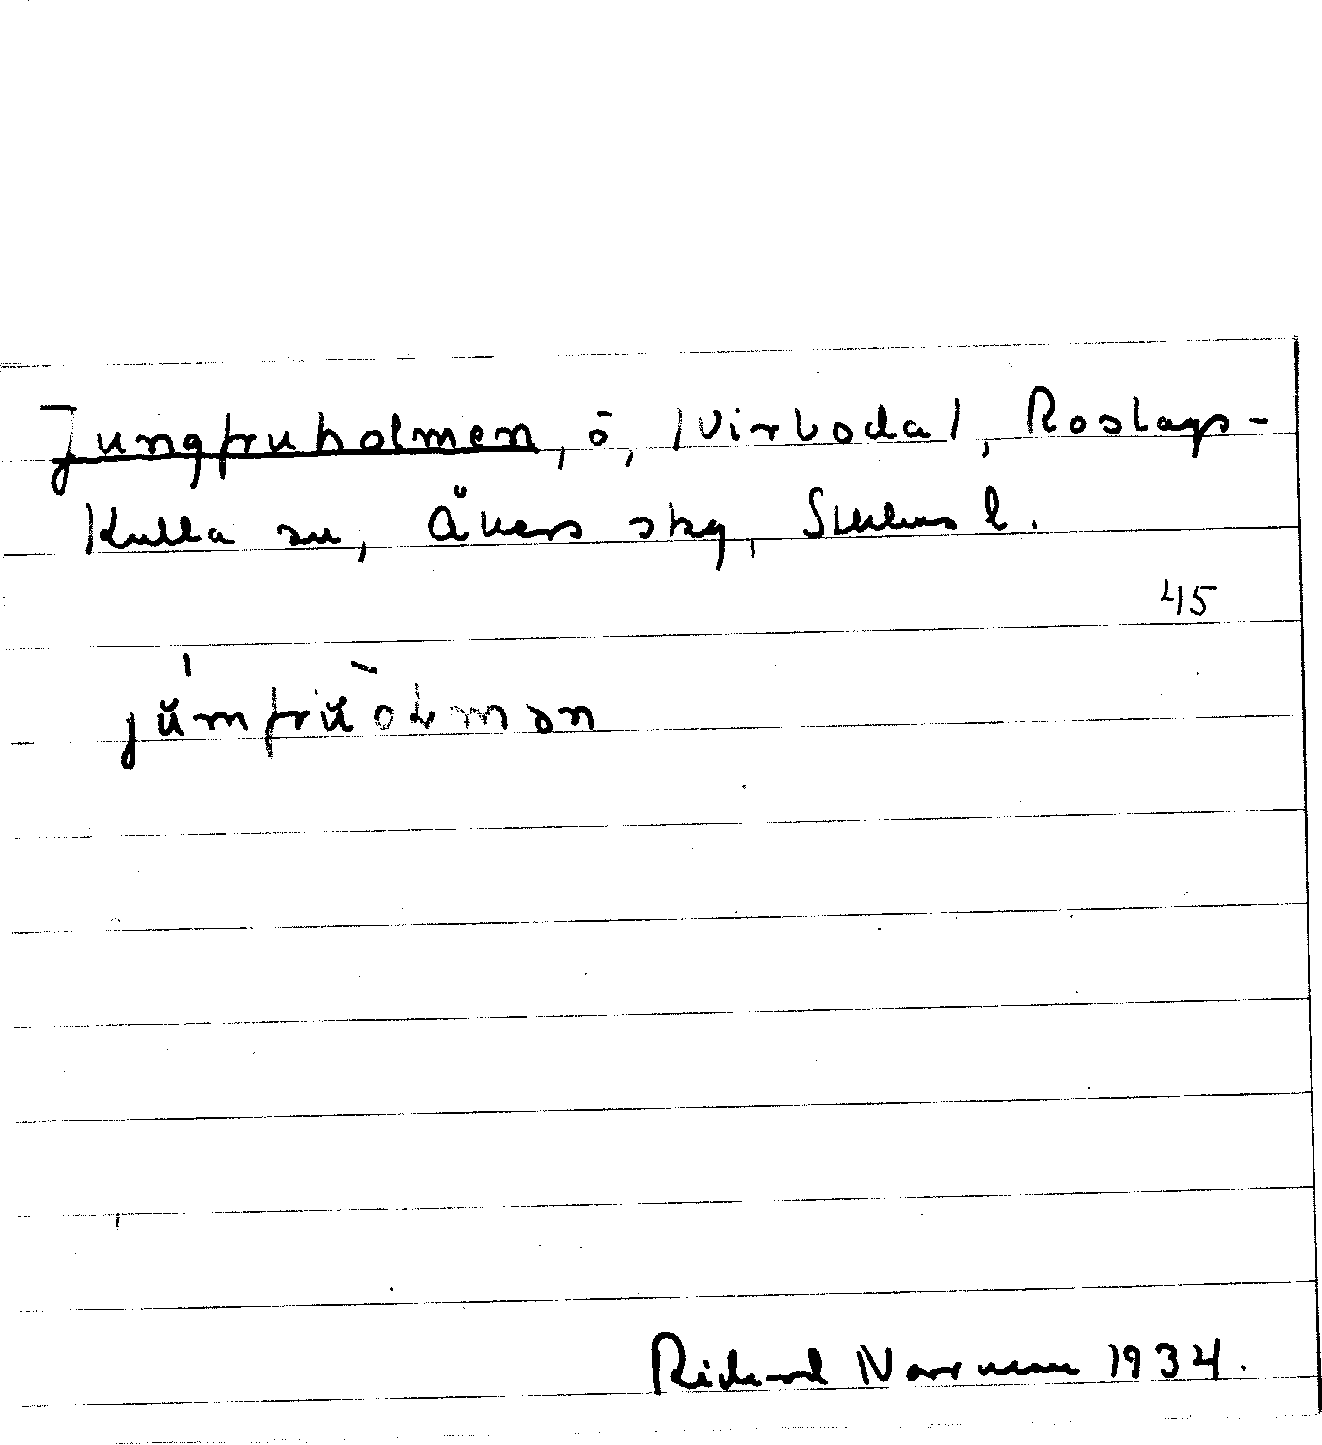 Jungfruholmen, ö, /Virboda/, Roslags-
Kulla sn, Åkers skg, Sthlms l.
45
jŭmfrŭolmən
Richard Norrman 1934.